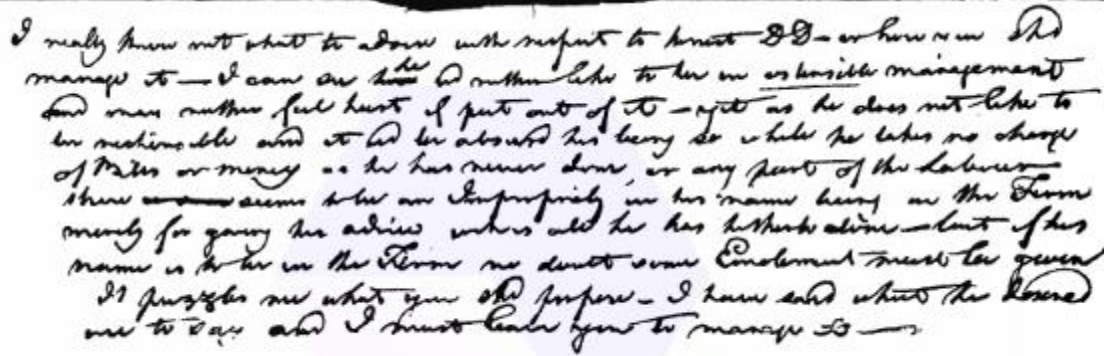 I really know not what to advise with respect to honest DD — or how you shd
manage it — I can see he wd rather like to be in ostensible management
and may rather feel hurt if put out of it — yet as he does not like to
be responsible and it wd be absurd his being so while he takes no charge
of Bills or money as he has never done, or any part of the Labour
there seems to be an Impropriety in his name being in the Firm
merely for giving his advice which is all he has hitherto done — but if his
name is to be in the Firm no doubt some Emolument must be given
It puzzles me what you shd propose — I have said what he desired
me to say and I must leave you to manage it —